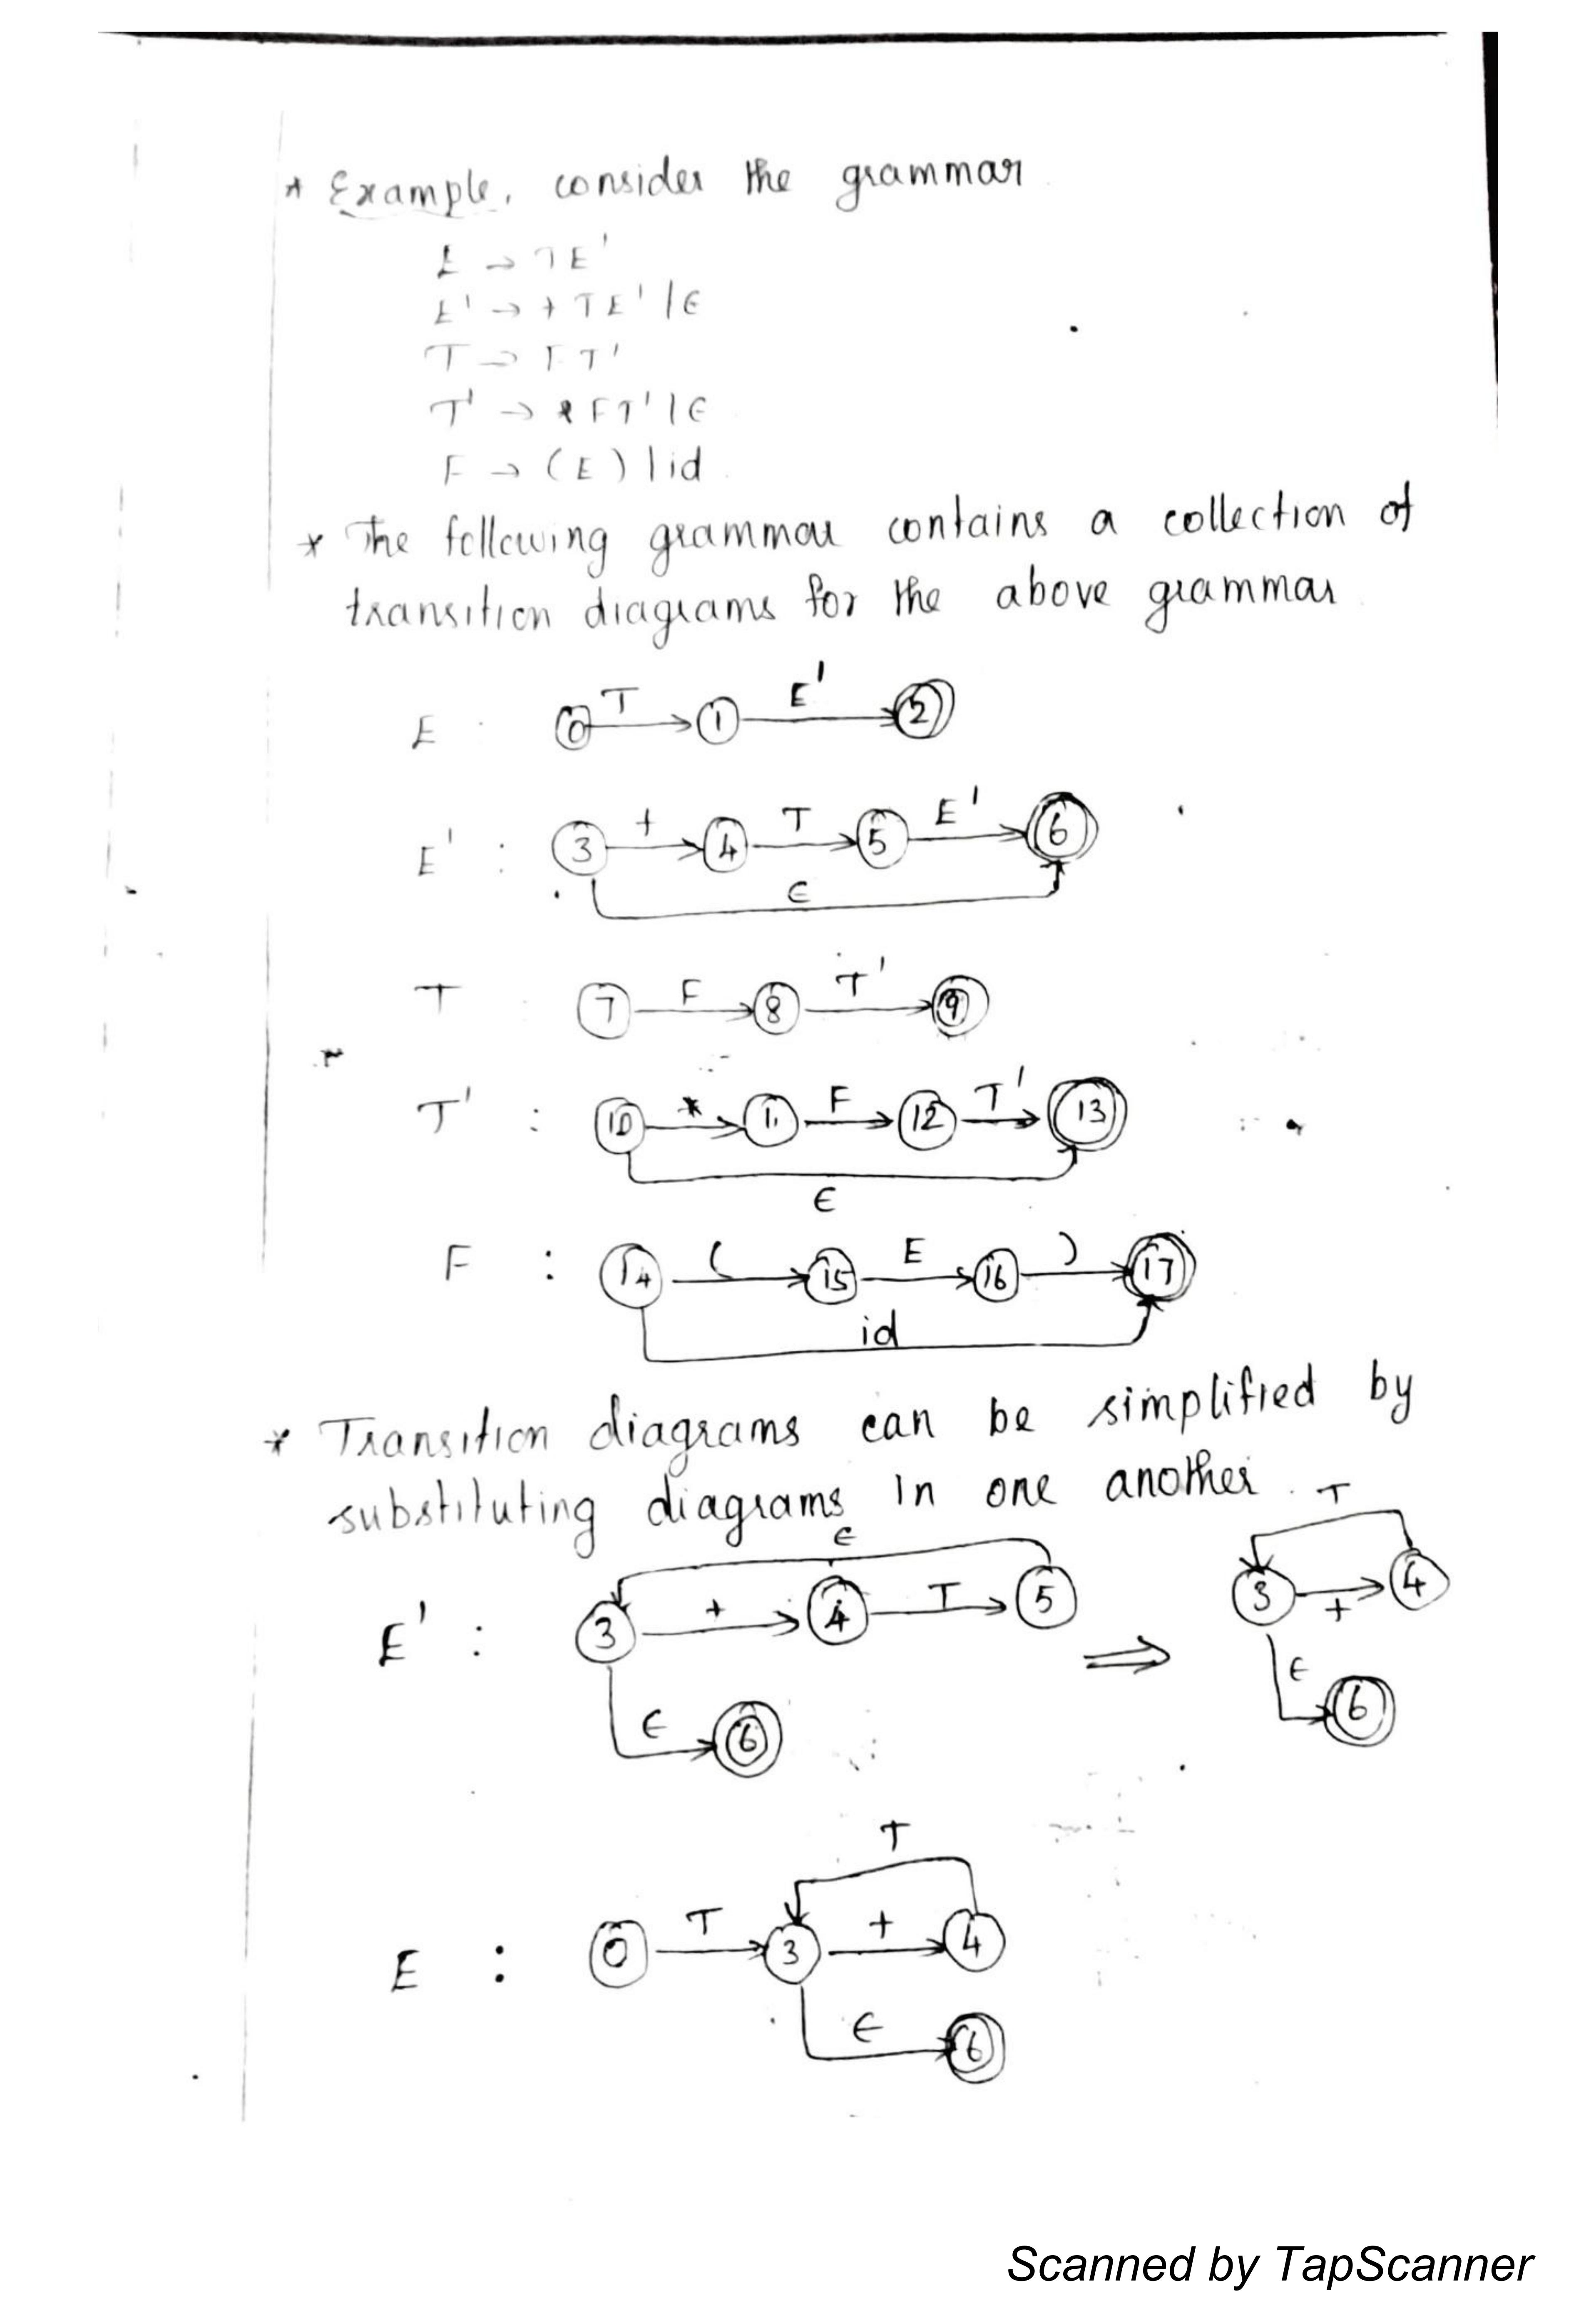 * Example, consider the grammar
E → TE'
E' → + TE' | ϵ
T → FT'
T' → * FT' | ϵ
F → (E) | id
* The following grammar contains a collection of
transition diagrams for the above grammar
T E'
E : 0 1 2
+ T E'
E' : 3 4 5 6
ϵ
F T'
T 7 8 9
* F T'
T' : 10 11 12 13
ϵ
( E )
F : 14 15 16 17
id
* Transition diagrams can be simplified by
substituting diagrams in one another.
ϵ T
+ T
E' : 3 4 5 ⇒ 3 + 4
ϵ 6 ϵ 6
T
T +
E : 0 3 4
ϵ 6
Scanned by TapScanner